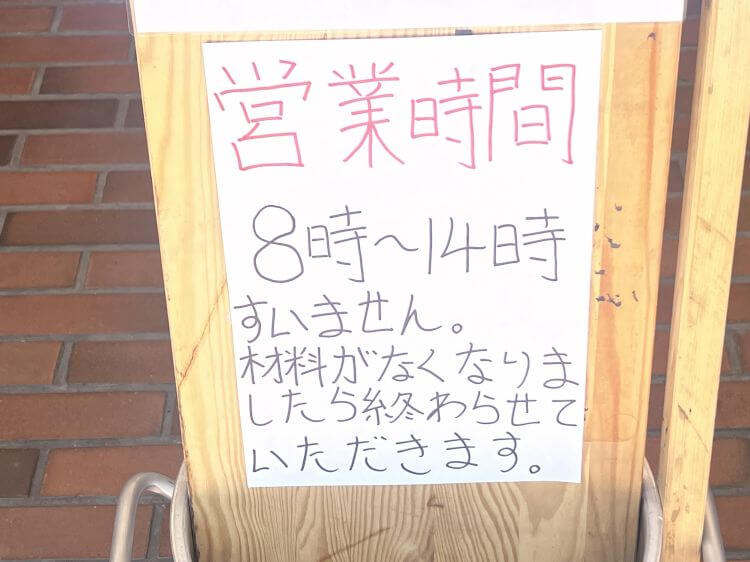 営業時間
8時〜14時
すいません。
材料がなくなりま
したら終わらせて
いただきます。